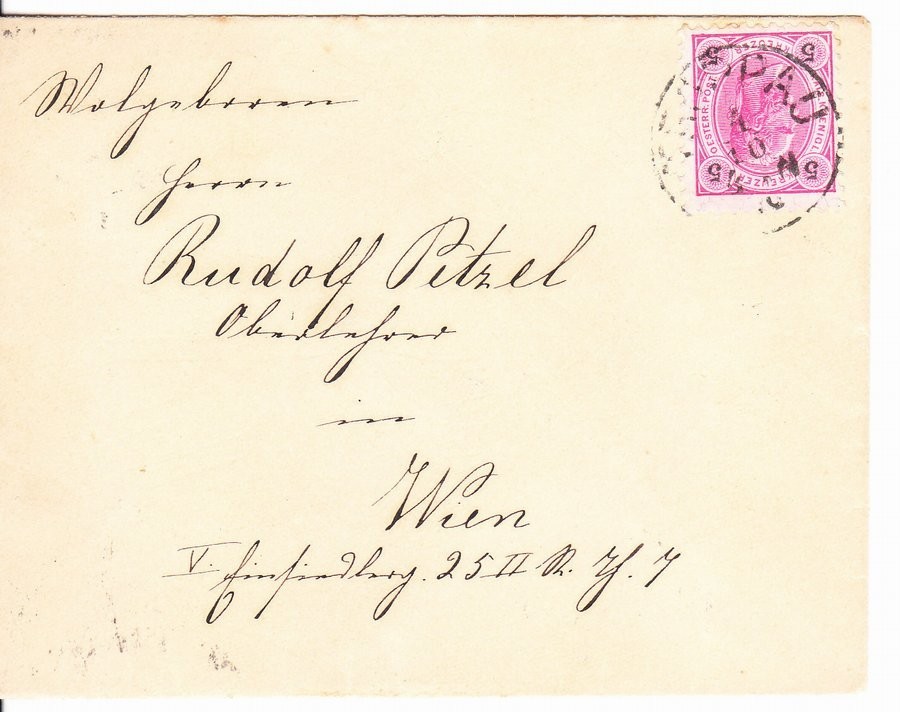 Wolgeboren
Herrn
Rudolf Petzel
Oberlehrer
in
Wien
V. Einsiedlerg. 25 II St. Th. 7
5 KREUZER 5
OESTERR. POST
5 KREUZER 5